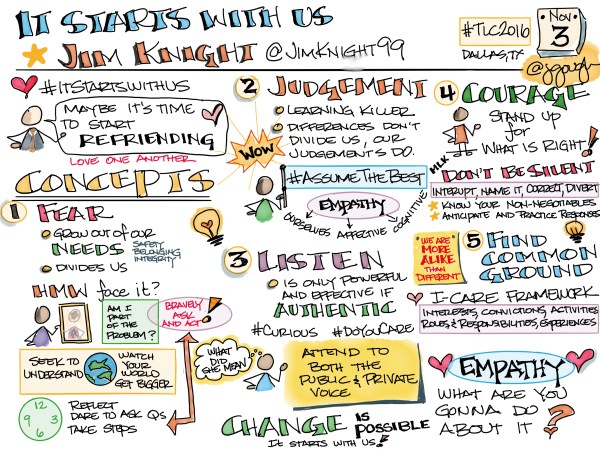 IT STARTS WITH US
JIM KNIGHT @JIMKNIGHT99
#TLC2016
DALLAS, TX
NOV.
3
@jgough
#ITSTARTSWITHUS
MAYBE IT'S TIME
TO START
REFRIENDING
LOVE ONE ANOTHER
CONCEPTS
1 FEAR
GROW OUT OF OUR
NEEDS
SAFETY
BELONGING
INTEGRITY
DIVIDES US
HMW face it?
AM I
PART
OF THE
PROBLEM?
BRAVELY
ASK
AND ACT!
SEEK TO
UNDERSTAND
WATCH
YOUR
WORLD
GET BIGGER
12
3
6
9
REFLECT
DARE TO ASK QS
TAKE STEPS
2 JUDGEMENT
LEARNING KILLER
DIFFERENCES DON'T
DIVIDE US, OUR
JUDGEMENT'S DO.
WOW
#ASSUMETHEBEST
EMPATHY
OURSELVES AFFECTIVE COGNITIVE
3 LISTEN
IS ONLY POWERFUL
AND EFFECTIVE IF
AUTHENTIC
#CURIOUS #DOYOUCARE
WHAT
DID
SHE MEAN?
ATTEND TO
BOTH THE
PUBLIC & PRIVATE
VOICE
CHANGE IS POSSIBLE
IT STARTS WITH US!
4 COURAGE
STAND UP
for
WHAT IS RIGHT!
MLK
DON'T BE SILENT
INTERUPT, NAME IT, CORRECT, DIVERT
KNOW YOUR NON-NEGOTIABLES
ANTICIPATE AND PRACTICE RESPONSES
WE ARE
MORE
ALIKE
THAN
DIFFERENT
5 FIND
COMMON
GROUND
I-CARE FRAMEWORK
INTERESTS, CONVICTIONS, ACTIVITIES
ROLES & RESPONSIBILITIES, EXPERIENCES
EMPATHY
WHAT ARE YOU
GONNA DO
ABOUT IT?